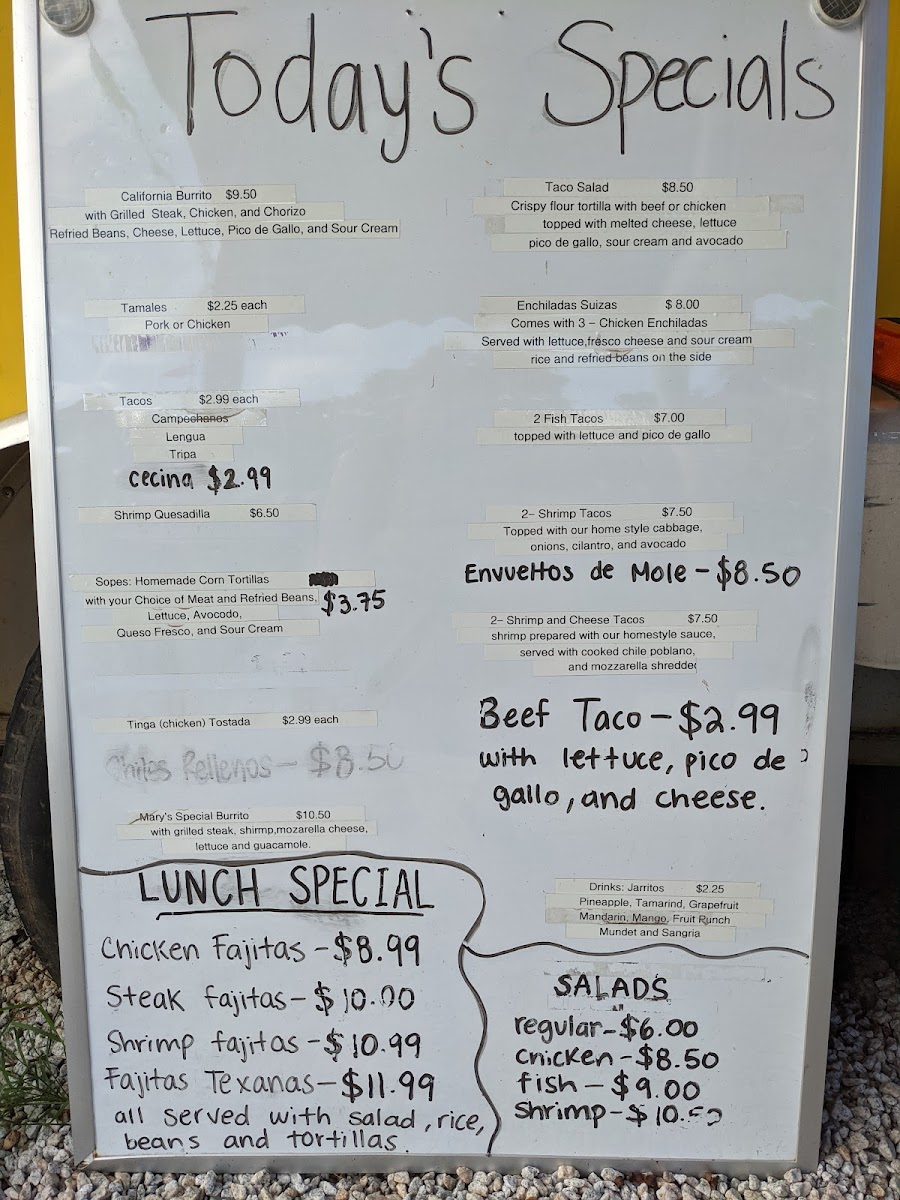 Today's Specials
California Burrito $9.50
with Grilled Steak, Chicken, and Chorizo
Refried Beans, Cheese, Lettuce, Pico de Gallo, and Sour Cream
Tamales $2.25 each
Pork or Chicken
Tacos $2.99 each
Campechanos
Lengua
Tripa
cecina $2.99
Shrimp Quesadilla $6.50
Sopes: Homemade Corn Tortillas
with your Choice of Meat and Refried Beans, $3.75
Lettuce, Avocodo,
Queso Fresco, and Sour Cream
Tinga (chicken) Tostada $2.99 each
Chiles Rellenos - $8.50
Mary's Special Burrito $10.50
with grilled steak, shirmp,mozarella cheese,
lettuce and guacamole.
Taco Salad $8.50
Crispy flour tortilla with beef or chicken
topped with melted cheese, lettuce
pico de gallo, sour cream and avocado
Enchiladas Suizas $ 8.00
Comes with 3 – Chicken Enchiladas
Served with lettuce,fresco cheese and sour cream
rice and refried beans on the side
2 Fish Tacos $7.00
topped with lettuce and pico de gallo
2– Shrimp Tacos $7.50
Topped with our home style cabbage,
onions, cilantro, and avocado
Envueltos de Mole - $8.50
2– Shrimp and Cheese Tacos $7.50
shrimp prepared with our homestyle sauce,
served with cooked chile poblano,
and mozzarella shredded
Beef Taco - $2.99
with lettuce, pico de
gallo, and cheese.
Drinks: Jarritos $2.25
Pineapple, Tamarind, Grapefruit
Mandarin, Mango, Fruit Punch
Mundet and Sangria
LUNCH SPECIAL
Chicken Fajitas - $8.99
Steak fajitas - $10.00
Shrimp fajitas - $10.99
Fajitas Texanas - $11.99
all served with salad, rice,
beans and tortillas.
SALADS
regular - $6.00
chicken - $8.50
fish - $9.00
shrimp - $10.50